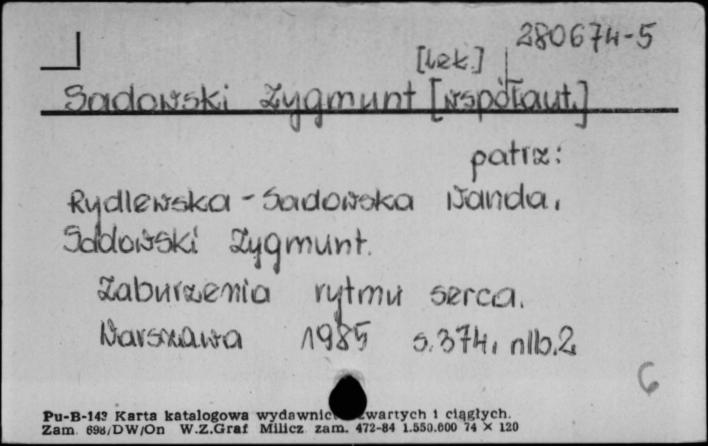 280674-5
[lek.]
Sadowski Zygmunt [współaut.]
patrz:
Rydlewska-Sadowska Wanda,
Sadowski Zygmunt.
Zaburzenia rytmu serca.
Warszawa 1985 s.374, nlb.2
6
Pu-B-143 Karta katalogowa wydawnict zwartych i ciągłych.
Zam. 698/DW/On W.Z.Graf Milicz zam. 472-84 1.550.000 74 × 120